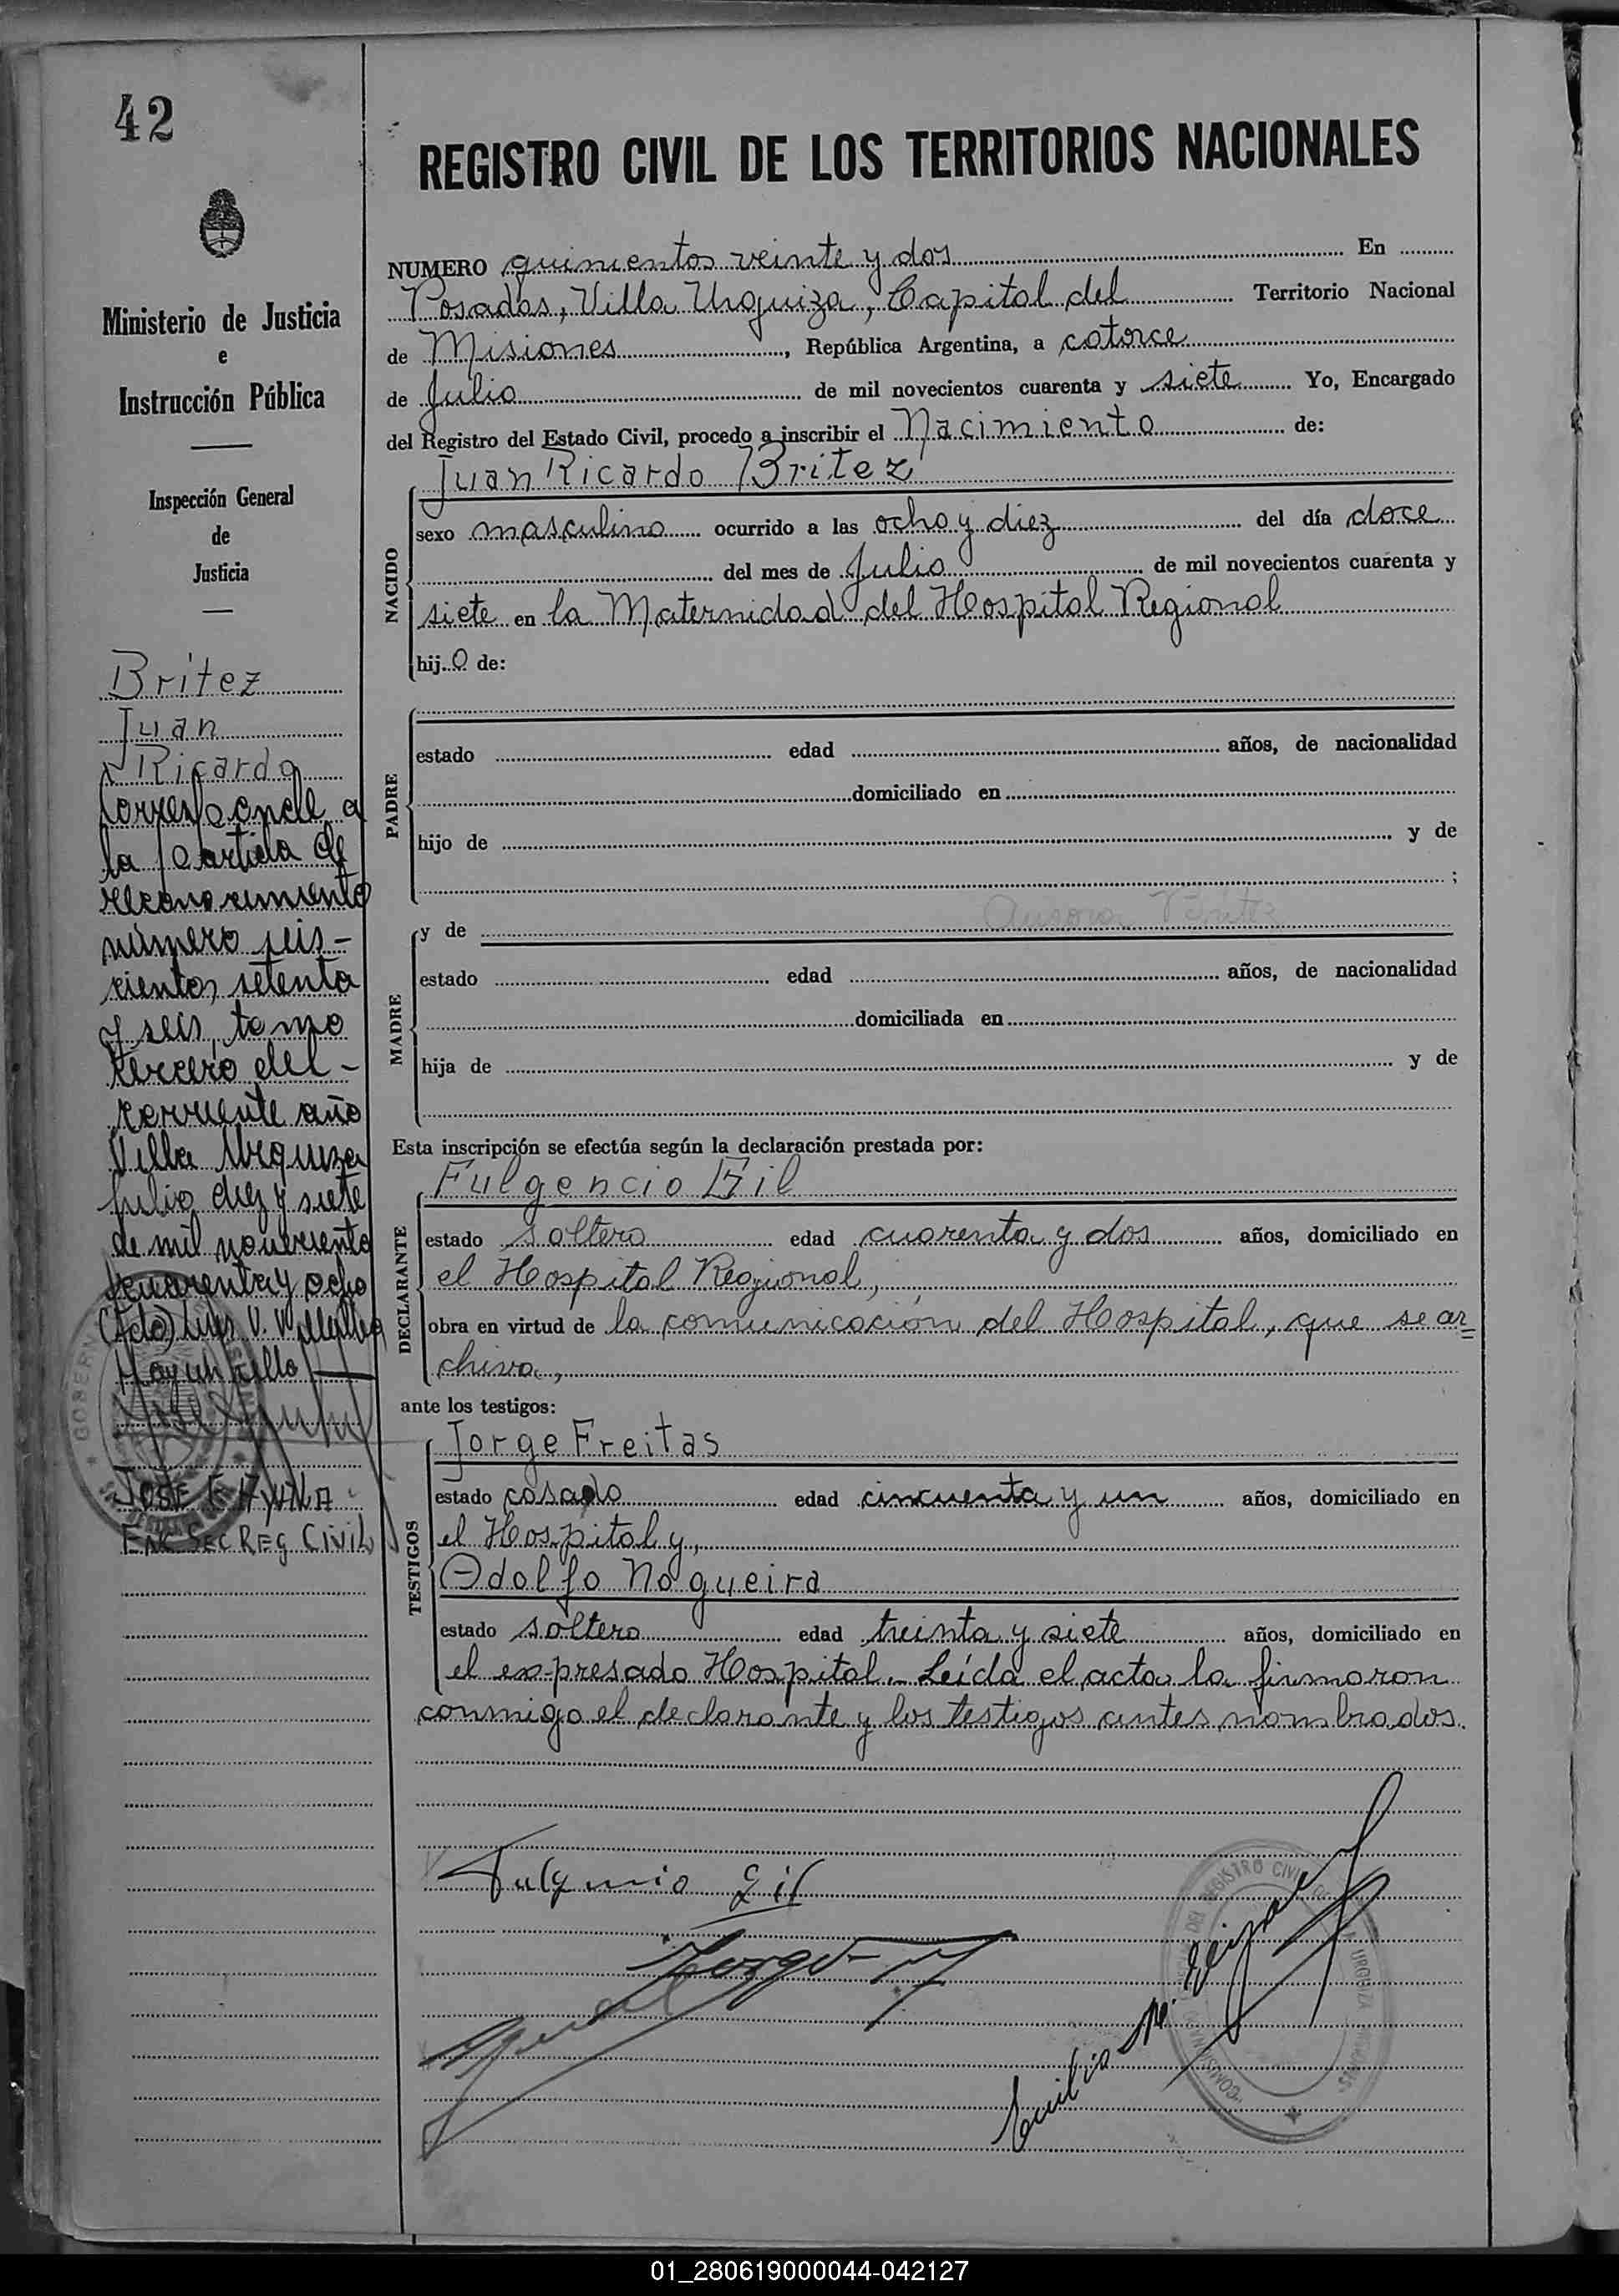 42
REGISTRO CIVIL DE LOS TERRITORIOS NACIONALES
Ministerio de Justicia
e
Instrucción Pública
Inspección General
de
Justicia
Britez
Juan
Ricardo
Corresponde a
la partida de
reconocimiento
número seis-
cientos setenta
y seis, tomo
tercero del -
corriente año
Villa Urquiza
julio diez y siete
de mil novecientos
cuarenta y ocho
(Fdo) Luis V. Villalba
Hay un sello
JOSE F. AYALA
ENC SEC REG CIVIL
NUMERO quinientos veinte y dos En
Posadas, Villa Urquiza, Capital del Territorio Nacional
de Misiones, República Argentina, a catorce
de Julio de mil novecientos cuarenta y siete Yo, Encargado
del Registro del Estado Civil, procedo a inscribir el Nacimiento de:
Juan Ricardo Britez
NACIDO
sexo masculino ocurrido a las ocho y diez del día doce
del mes de Julio de mil novecientos cuarenta y
siete en la Maternidad del Hospital Regional
hijo de:
PADRE
estado edad años, de nacionalidad
domiciliado en
hijo de y de
;
MADRE
y de Aurora Britez
estado edad años, de nacionalidad
domiciliada en
hija de y de
Esta inscripción se efectúa según la declaración prestada por:
Fulgencio Gil
DECLARANTE
estado soltero edad cuarenta y dos años, domiciliado en
el Hospital Regional,
obra en virtud de la comunicación del Hospital, que se ar=
chiva,
ante los testigos:
Jorge Freitas
TESTIGOS
estado casado edad cincuenta y un años, domiciliado en
el Hospital y,
Adolfo Nogueira
estado soltero edad treinta y siete años, domiciliado en
el expresado Hospital.- Leída el acta la firmaron
conmigo el declarante y los testigos antes nombrados.
Fulgencio Gil
Jorge F
01_280619000044-042127